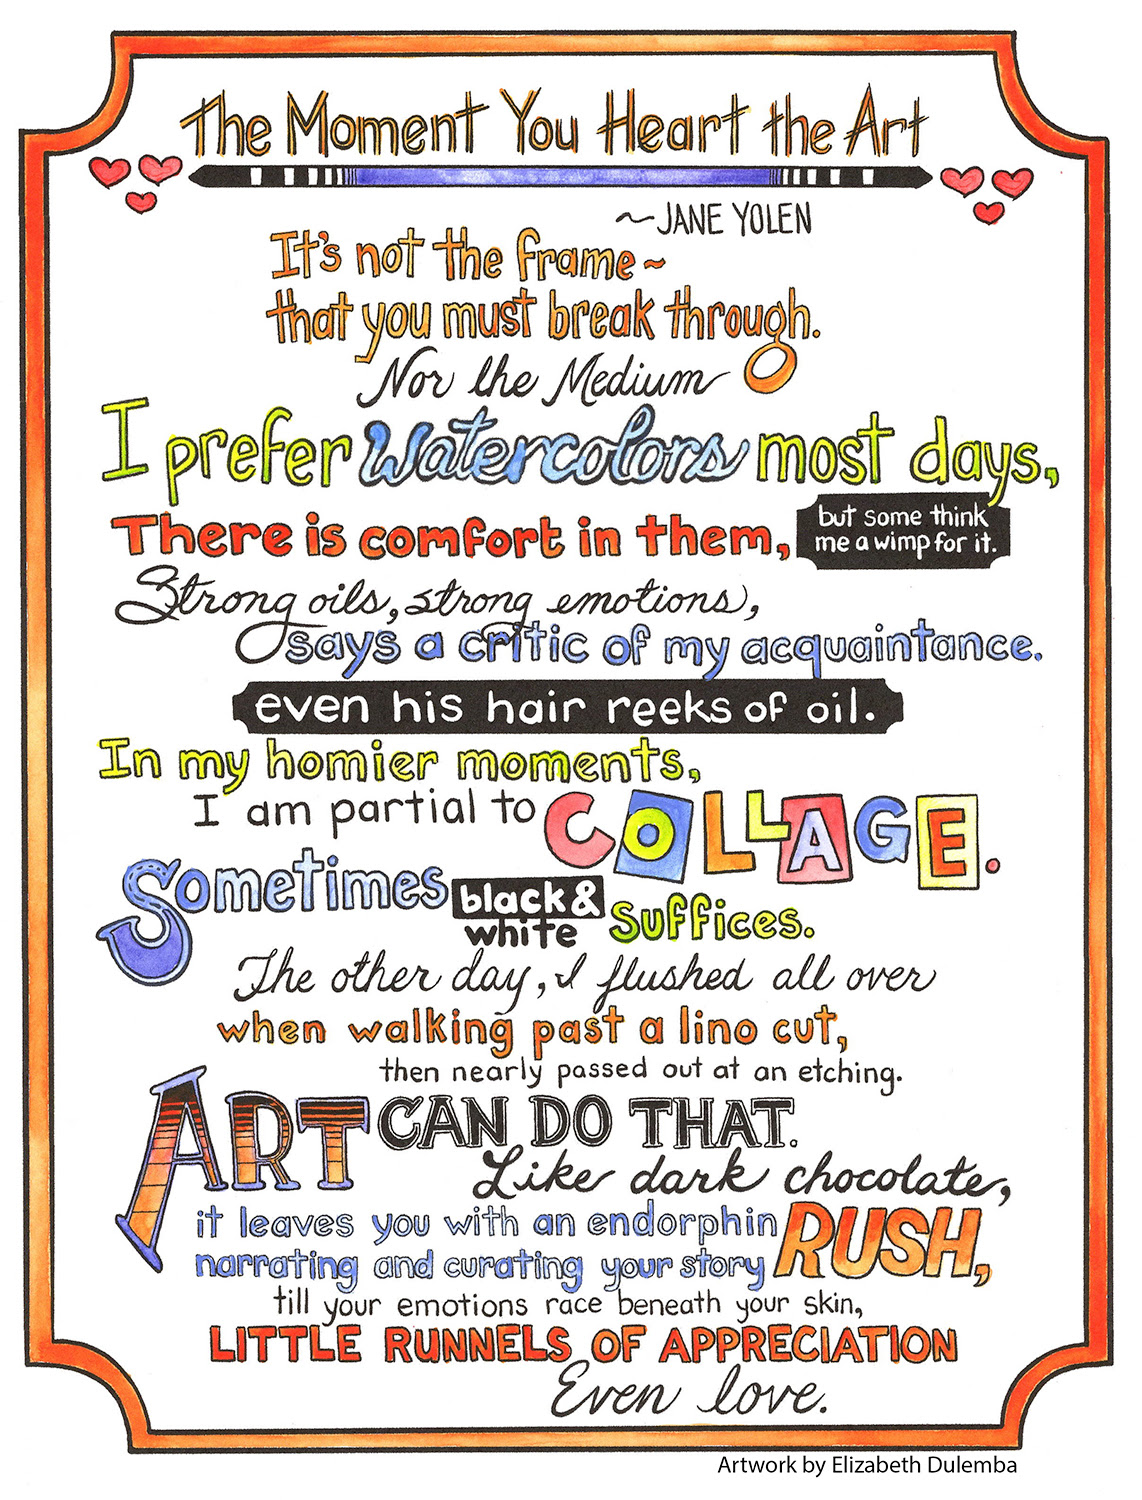 The Moment You Heart the Art
~JANE YOLEN
It's not the frame~
that you must break through.
Nor the Medium
I prefer Watercolors most days,
There is comfort in them, but some think
me a wimp for it.
Strong oils, strong emotions,
says a critic of my acquaintance.
even his hair reeks of oil.
In my homier moments,
I am partial to COLLAGE.
Sometimes black & white suffices.
The other day, I flushed all over
when walking past a lino cut,
then nearly passed out at an etching.
ART CAN DO THAT.
Like dark chocolate,
it leaves you with an endorphin RUSH,
narrating and curating your story
till your emotions race beneath your skin,
LITTLE RUNNELS OF APPRECIATION
Even love.
Artwork by Elizabeth Dulemba